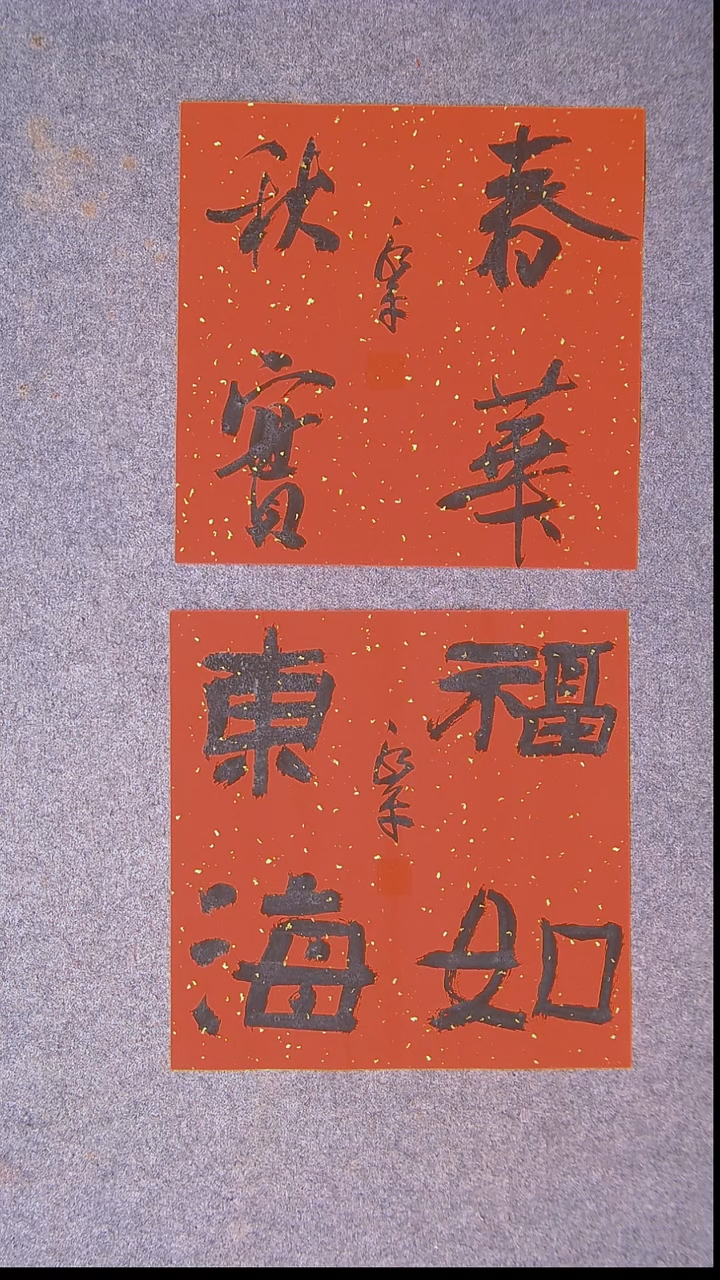 春華
秋實
福如
東海